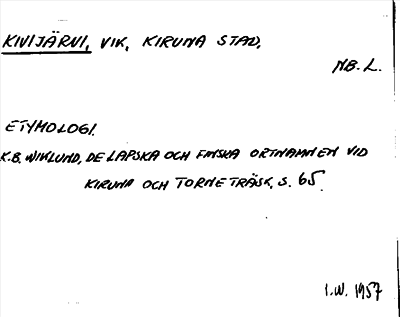 KIVIJÄRVI, VIK, KIRUNA STAD,
NB. L.
ETYMOLOGI.
K.B. WIKLUND, DE LAPSKA OCH FINSKA ORTNAMNEN VID
KIRUNA OCH TORNETRÄSK, S. 65.
I.W. 1957